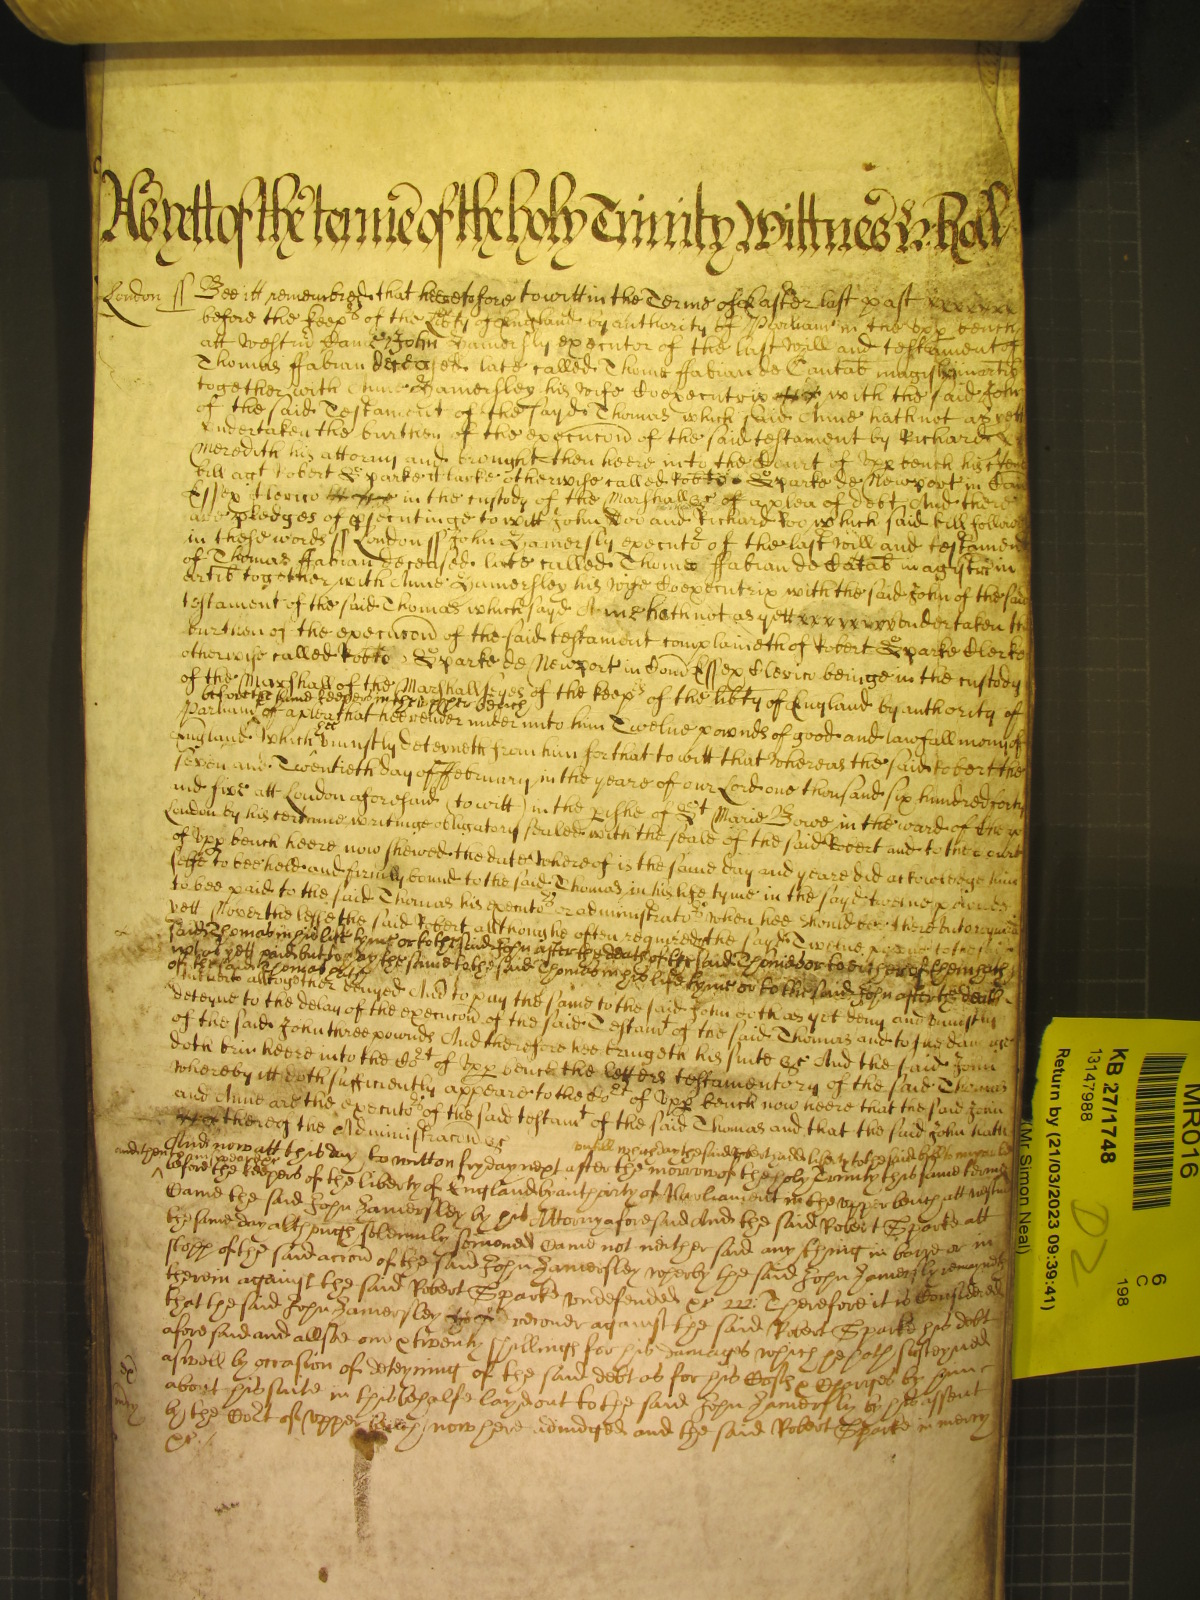 As yett of the terme of the holy Trinity Wittnes H: Roll
London ss Bee itt remembred that heeretofore to witt in the Terme of Easter last past
before the keeprs of the libty of England by authority of Parliamt in the Upp bench
att Westm̄ Came John Hamersly executor of the last will and testament of
Thomas ffabian deceased late called Thome ffabian de Cantab magistri in artib
together with Anne Hamersley his wife Coexecutrix with the said John
of the said Testament of the sayd Thomas which said Anne hath not as yett
Undertaken the burthen of the execucon of the said testament by Richard
Meredith his attorny and brought then heere into the Court of Upp bench his
bill agt Robert Sparke Clarke otherwise called Robto Sparke de Newport in Com
Essex Clerico in the custody of the Marshall &c of a plea of debt And there
are pledges of psecutinge to witt John Doo and Richard Roo which said bill followes
in these words ss London ss John Hamersly executor of the last will and testament
of Thomas ffabian deceased late called Thome ffabian de Catab magistri in
artib together with Anne Hamersley his wife Coexecutrix with the said John of the said
testament of the said Thomas which sayd Anne hath not as yett undertaken the
burthen of the execucon of the said testament complaineth of Robert Sparke Clerke
otherwise called Robto Sparke de Newport in Com Essex Clerico beinge in the custody
of the Marshall of the Marshallseyes of the keeprs of the libty of England by authority of
before the same keepers in the upper bench
Parliamt of a plea that hee render unto him Twelve pownds of good and lawfull mony of
England Which hee uniustly deteyneth from him for that to witt that Whereas the said Robert the
seven and Twentieth day of ffebruary in the yeare of our Lord one thousand six hundred forty
and five att London aforesaid (to witt) in the pishe of St Marie Bowe in the ward of
London by his certaine writinge obligatory sealed with the seale of the said Robert and to the court
of Upp bench heere now shewed the date Whereof is the same day and yeare did acknowledge him
selfe to bee held and firmly bound to the said Thomas in his life tyme in the sayd twelve pownds
to bee paid to the said Thomas his executors or administrators when hee should bee thereunto required
yett Moreover the said Robert allthoughe often required the sayd Twelve pownds to the
said Thomas in his life tyme or to the said John after the death of the said Thomas or to either of them hath
not yett paid but to pay the same to the said Thomas in his life tyme or to the said John after the death
of the said Thomas hath
altogether denyed And to pay the same to the said John doth as yet deny and uniustly
deteyne to the delay of the execucon of the said Testamt of the said Thomas and to the damage
of the said John three pownds And therefore hee bringeth his suite &c And the said John
doth brin heere into the Cort of Upp bench the letters testamentory of the said Thomas
whereby itt doth sufficiently appeare to the Cort of Upp bench now heere that the said John
and Anne are the executors of the said testamt of the said Thomas and that the said John hath
thereof the Administracon &c
And now att this day to witt on fryday next after the morrow of the holy Trinity this same terme
before the keepers of the liberty of England by authority of Parliament in the upper bench att Westm
Came the said John Hamersley by his Attorny aforesaid And the said Robert Sparke att
the same day although solemnly somoned Came not neither said any thing in barre or in
stopp of the said accion of the said John Hamersley wherby the said John Hamersly remayneth
therein against the said Robert Sparke undefended &c Therefore it is Considered
that the said John Hamersley recover against the said Robert Sparke his debt
aforesaid and allsoe one & twenty shillings for his damages which he hath susteyned
aswell by occasion of deteyning of the said debt as for his Costs & Charges by him
about his suite in this behalfe layd out to the said John Hamersly by his assent
by the Cort of Upper bench now here adiudged and the said Robert Sparke in mercy
&c
MR016
6
C
198
KB 27/1748
13147988
D2
Return by (21/03/2023 09:39:41)
(Mr Simon Neal)